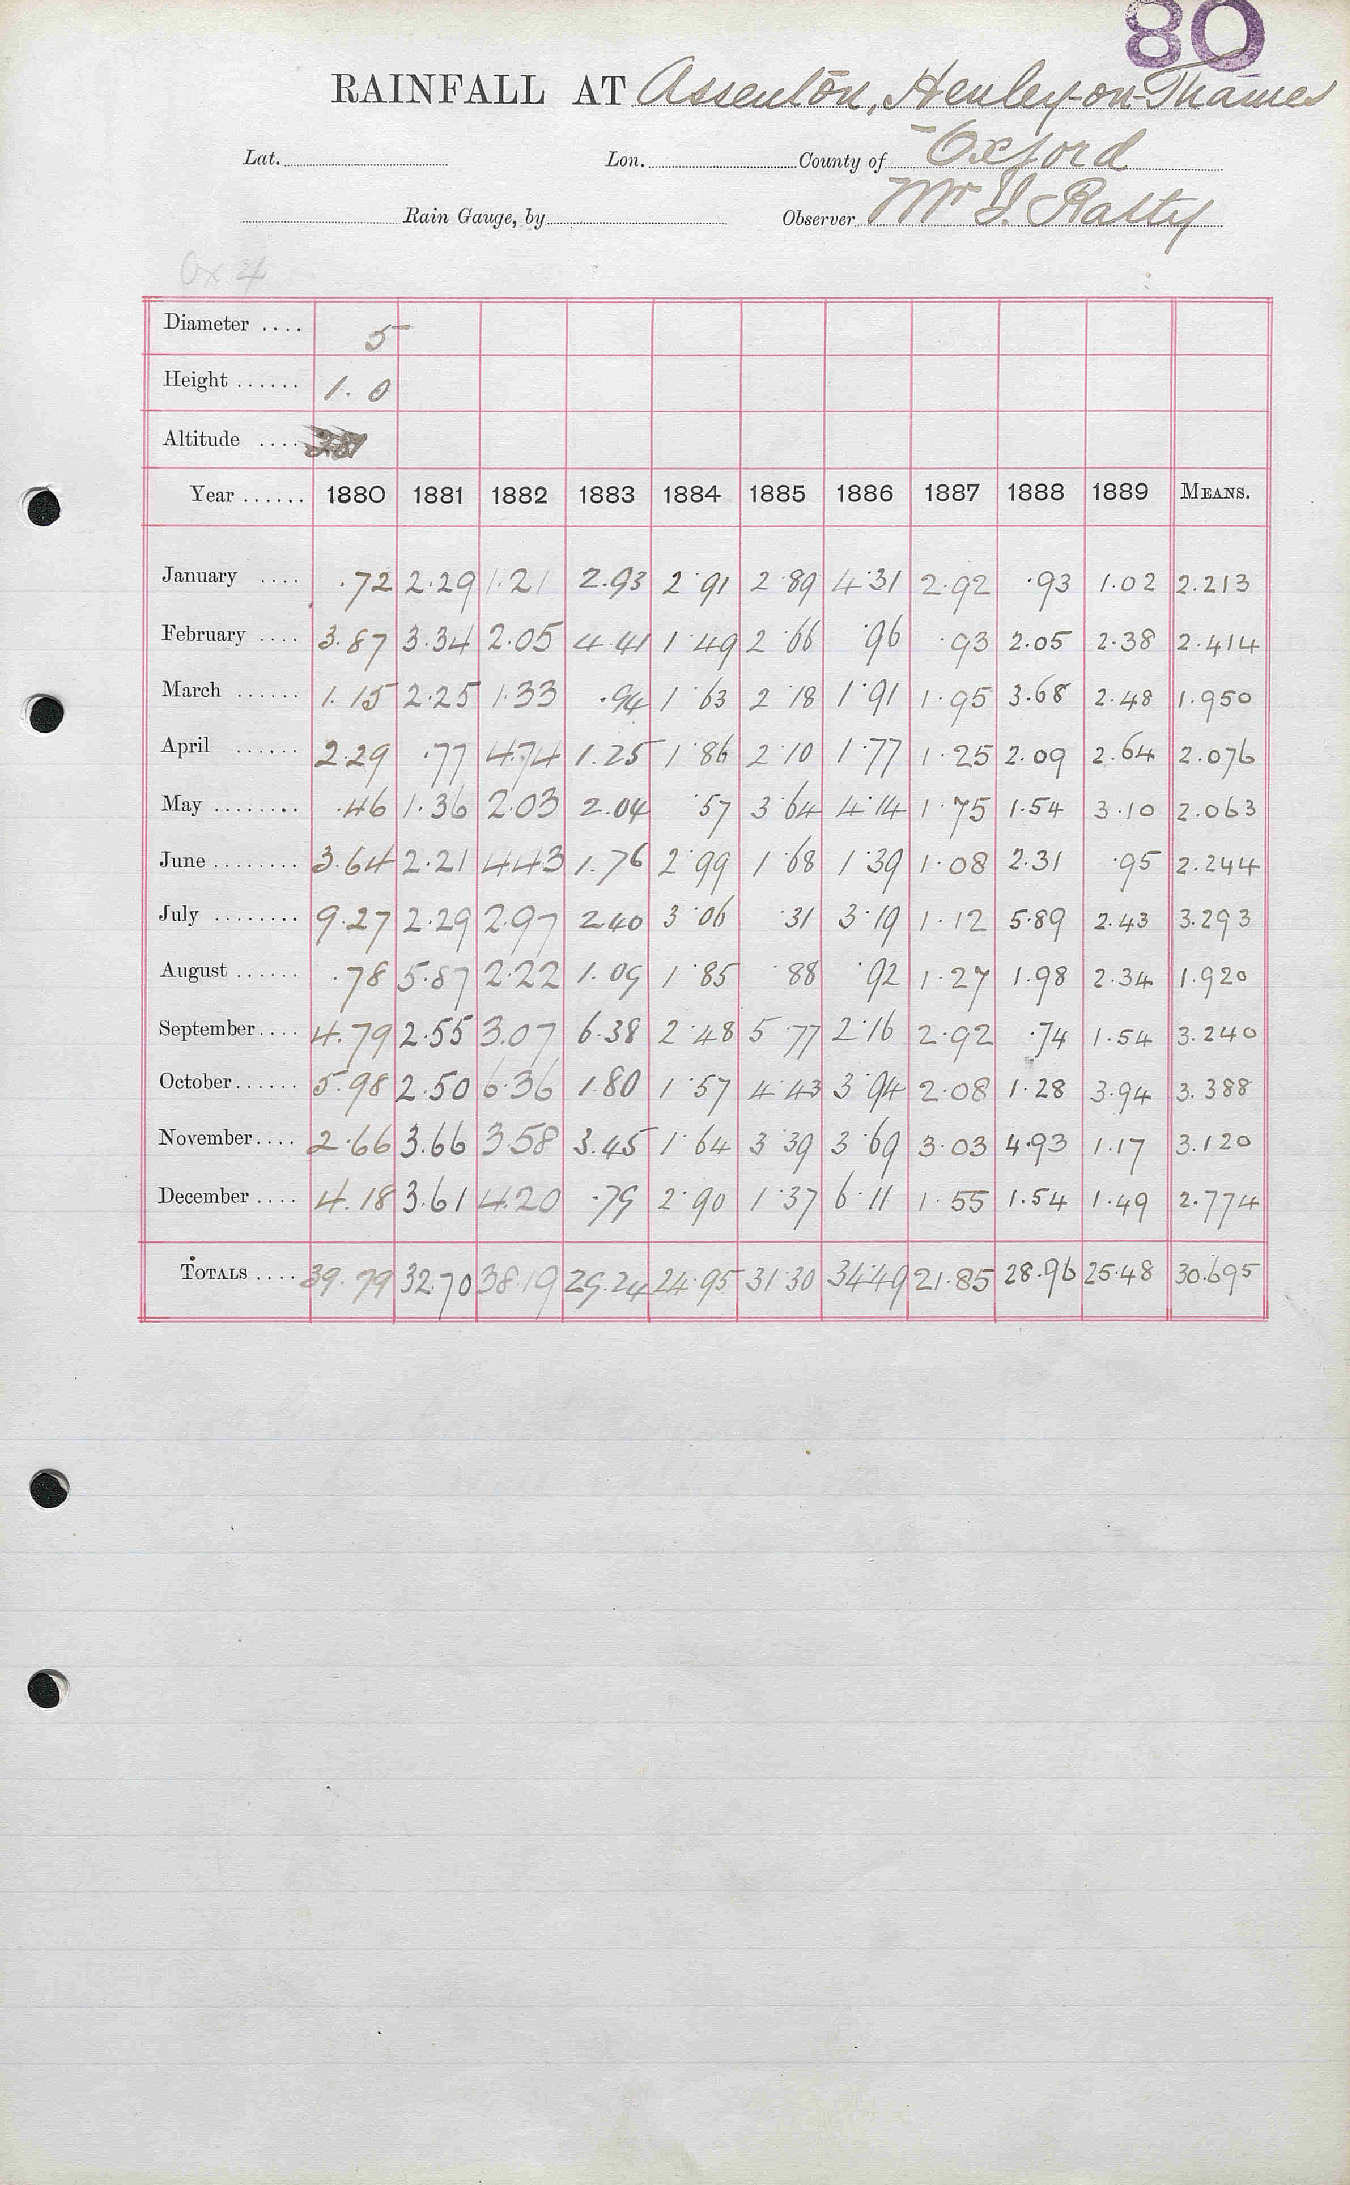 80
RAINFALL AT Assenton, Henley-on-Thames
Lat. Lon. County of Oxford
Rain Gauge, by Observer Mr
Ox 4
Diameter .... 5
Height ...... 1. 0
Altitude ....
Year ...... 1880 1881 1882 1883 1884 1885 1886 1887 1888 1889 MEANS.
January .... .72 2.29 1.21 2.93 2.91 2.89 4.31 2.92 .93 1.02 2.213
February .... 3.87 3.34 2.05 4.41 1.49 2.66 .96 .93 2.05 2.38 2.414
March ...... 1.15 2.25 1.33 .94 1.63 2.18 1.91 1.95 3.68 2.48 1.950
April ...... 2.29 .77 4.74 1.25 1.86 2.10 1.77 1.25 2.09 2.64 2.076
May ........ .46 1.36 2.03 2.04 .57 3.64 4.14 1.75 1.54 3.10 2.063
June ........ 3.64 2.21 4.43 1.76 2.99 1.68 1.39 1.08 2.31 .95 2.244
July ........ 9.27 2.29 2.97 2.40 3.06 .31 3.19 1.12 5.89 2.43 3.293
August ...... .78 5.87 2.22 1.09 1.85 .88 .92 1.27 1.98 2.34 1.920
September .... 4.79 2.55 3.07 6.38 2.48 5.77 2.16 2.92 .74 1.54 3.240
October ...... 5.98 2.50 6.36 1.80 1.57 4.43 3.94 2.08 1.28 3.94 3.388
November .... 2.66 3.66 3.58 3.45 1.64 3.39 3.69 3.03 4.93 1.17 3.120
December .... 4.18 3.61 4.20 .79 2.90 1.37 6.11 1.55 1.54 1.49 2.774
TOTALS .... 39.79 32.70 38.19 29.24 24.95 31.30 34.49 21.85 28.96 25.48 30.695